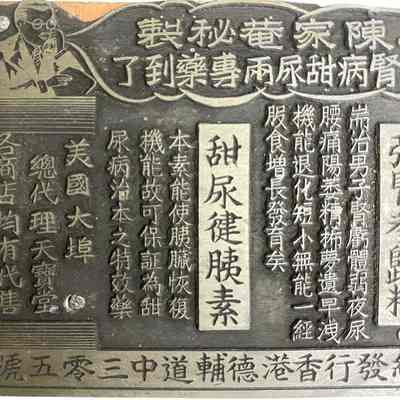 陳家菴秘製
腎病甜尿兩專藥到了
耑治男子腎虧體弱夜尿
腰痛陽萎精稀夢遺早洩
機能退化短小無能一經
服食增長發育矣
甜尿健胰素
本素能使胰臟恢復
機能故可保証為甜
尿病治本之特效藥
美國大埠
總代理天寶堂
各商店均有代售
發行香港德輔道中三零五號